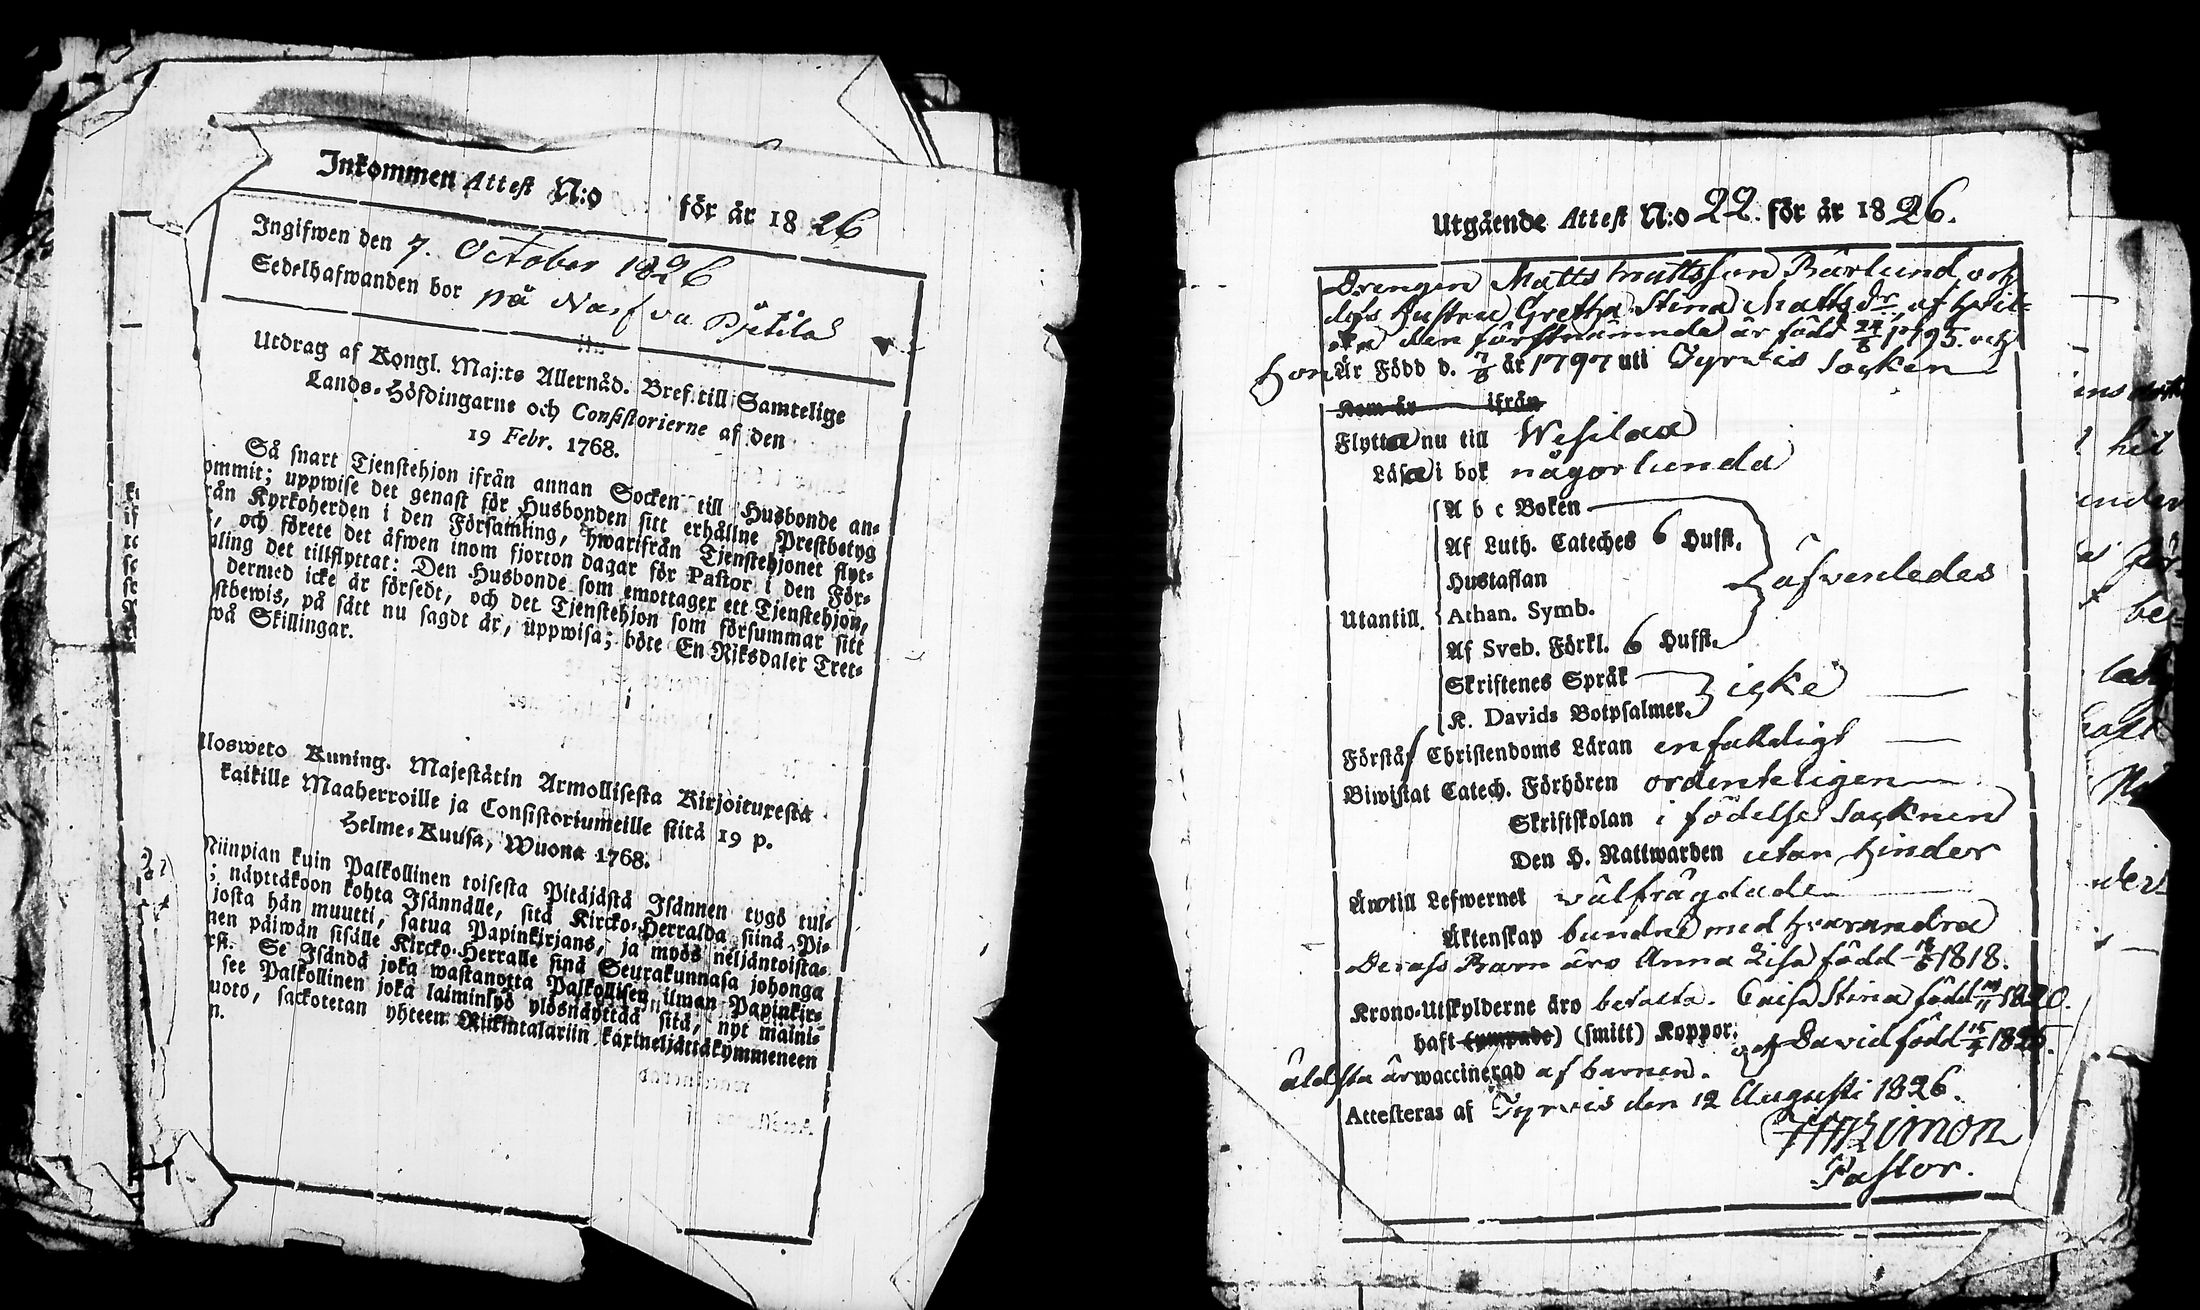 Inkommen Attest N:o för år 1826
Ingifwen den 7. October 1826
Sedelhafwanden bor på Nasfva Pietilas
Utdrag af Kongl. Maj:ts Allernåd. Bref till Samtelige
Lands-Höfdingarne och Consistorierne af den
19 Febr. 1768.
Så snart Tjenstehjon ifrån annan Socken till Husbonde an-
ommit; uppwise det genast för Husbonden sitt erhållne Prestbetyg
rån Kyrkoherden i den Församling, hwarifrån Tjenstehjonet flyt-
, och förete det äfwen inom fjorton dagar för Pastor i den För-
aling det tillflyttat: Den Husbonde som emottager ett Tjenstehjon,
dermed icke är försedt, och det Tjenstehjon som försummar sitt
stbewis, på sätt nu sagdt är, uppwisa; böte En Riksdaler Tret-
wå Skillingar.
llosweto Kuning. Majestätin Armollisesta Kirjoituxesta
kaikille Maaherroille ja Consistoriumeille siitä 19 p.
Helme-Kuusa, Wuona 1768.
Niinpian kuin Palkollinen toisesta Pitäjästä Isännen tygö tul-
; näyttäköön kohta Isännälle, sitä Kircko-Herralda siinä Pi-
josta hän muutti, saatua Papinkirjans, ja myös neljäntoista-
nen päiwän sisälle Kircko-Herralle sinä Seurakunnasa johonga
rst. Se Isändä joka wastanotta Palkollisen ilman Papinkir-
see Palkollinen joka laiminlyö ylösnäyttää sitä, nyt maini-
uoto, sackotetan yhteen Riikintalariin kaxineljättäkymmeneen
n.
Utgående Attest N:o 22. för år 1826.
Drengen Matts Mattsson Bärlund och
dess Hustru Gretha Stina Matts dr. af hvil-
ka den förstnämnda är född 24/8 1795. och
hon Är Född d. 7/8 år 1797 uti Tyrvis Socken
Kom år ifrån
Flytta nu till Wesilax
Läsa i bok någorlunda
A b c Boken
Af Luth. Cateches 6 Hufst.
Hustaflan
Utantill. Athan. Symb. åfvenledes
Af Sveb. Förkl. 6 Hufst.
Skriftenes Språk
K. Davids Botpsalmer. icke
Förstår Christendoms Läran enfaldigt
Biwistat Catech. Förhören ordenteligen
Skriftskolan i födelse Socknen
Den H. Nattwarden utan hinder
Äro till Lefwernet välfrägdade
Äktenskap bundne med hvarandra
Derass Barn äro Anna Lisa född 18/6 1818.
Krono-Utskylderne äro betalta. Caisa Stina född 14/11 1820.
haft (ympade) (smitt) Koppor. och David född 15/4 1825.
äldsta är waccinerad af barnen.
Attesteras af Tyrvis den 12 Augusti 1826.
Limon
Pastor.